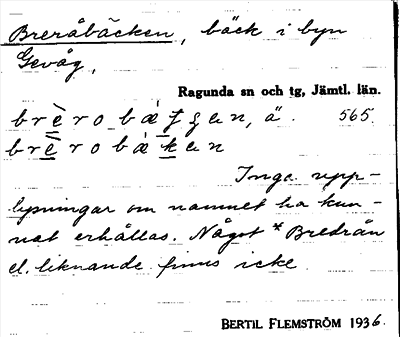 Breråbäcken, bäck i byn
Gevåg,
Ragunda sn och tg, Jämtl. län.
brèro bæ̀ en, ä. 565.
brèro bæ̀ken
Inga upp-
lysningar om namnet ha kun-
nat erhållas. Något *Bredrån
el. liknande finns icke
BERTIL FLEMSTRÖM 1936.